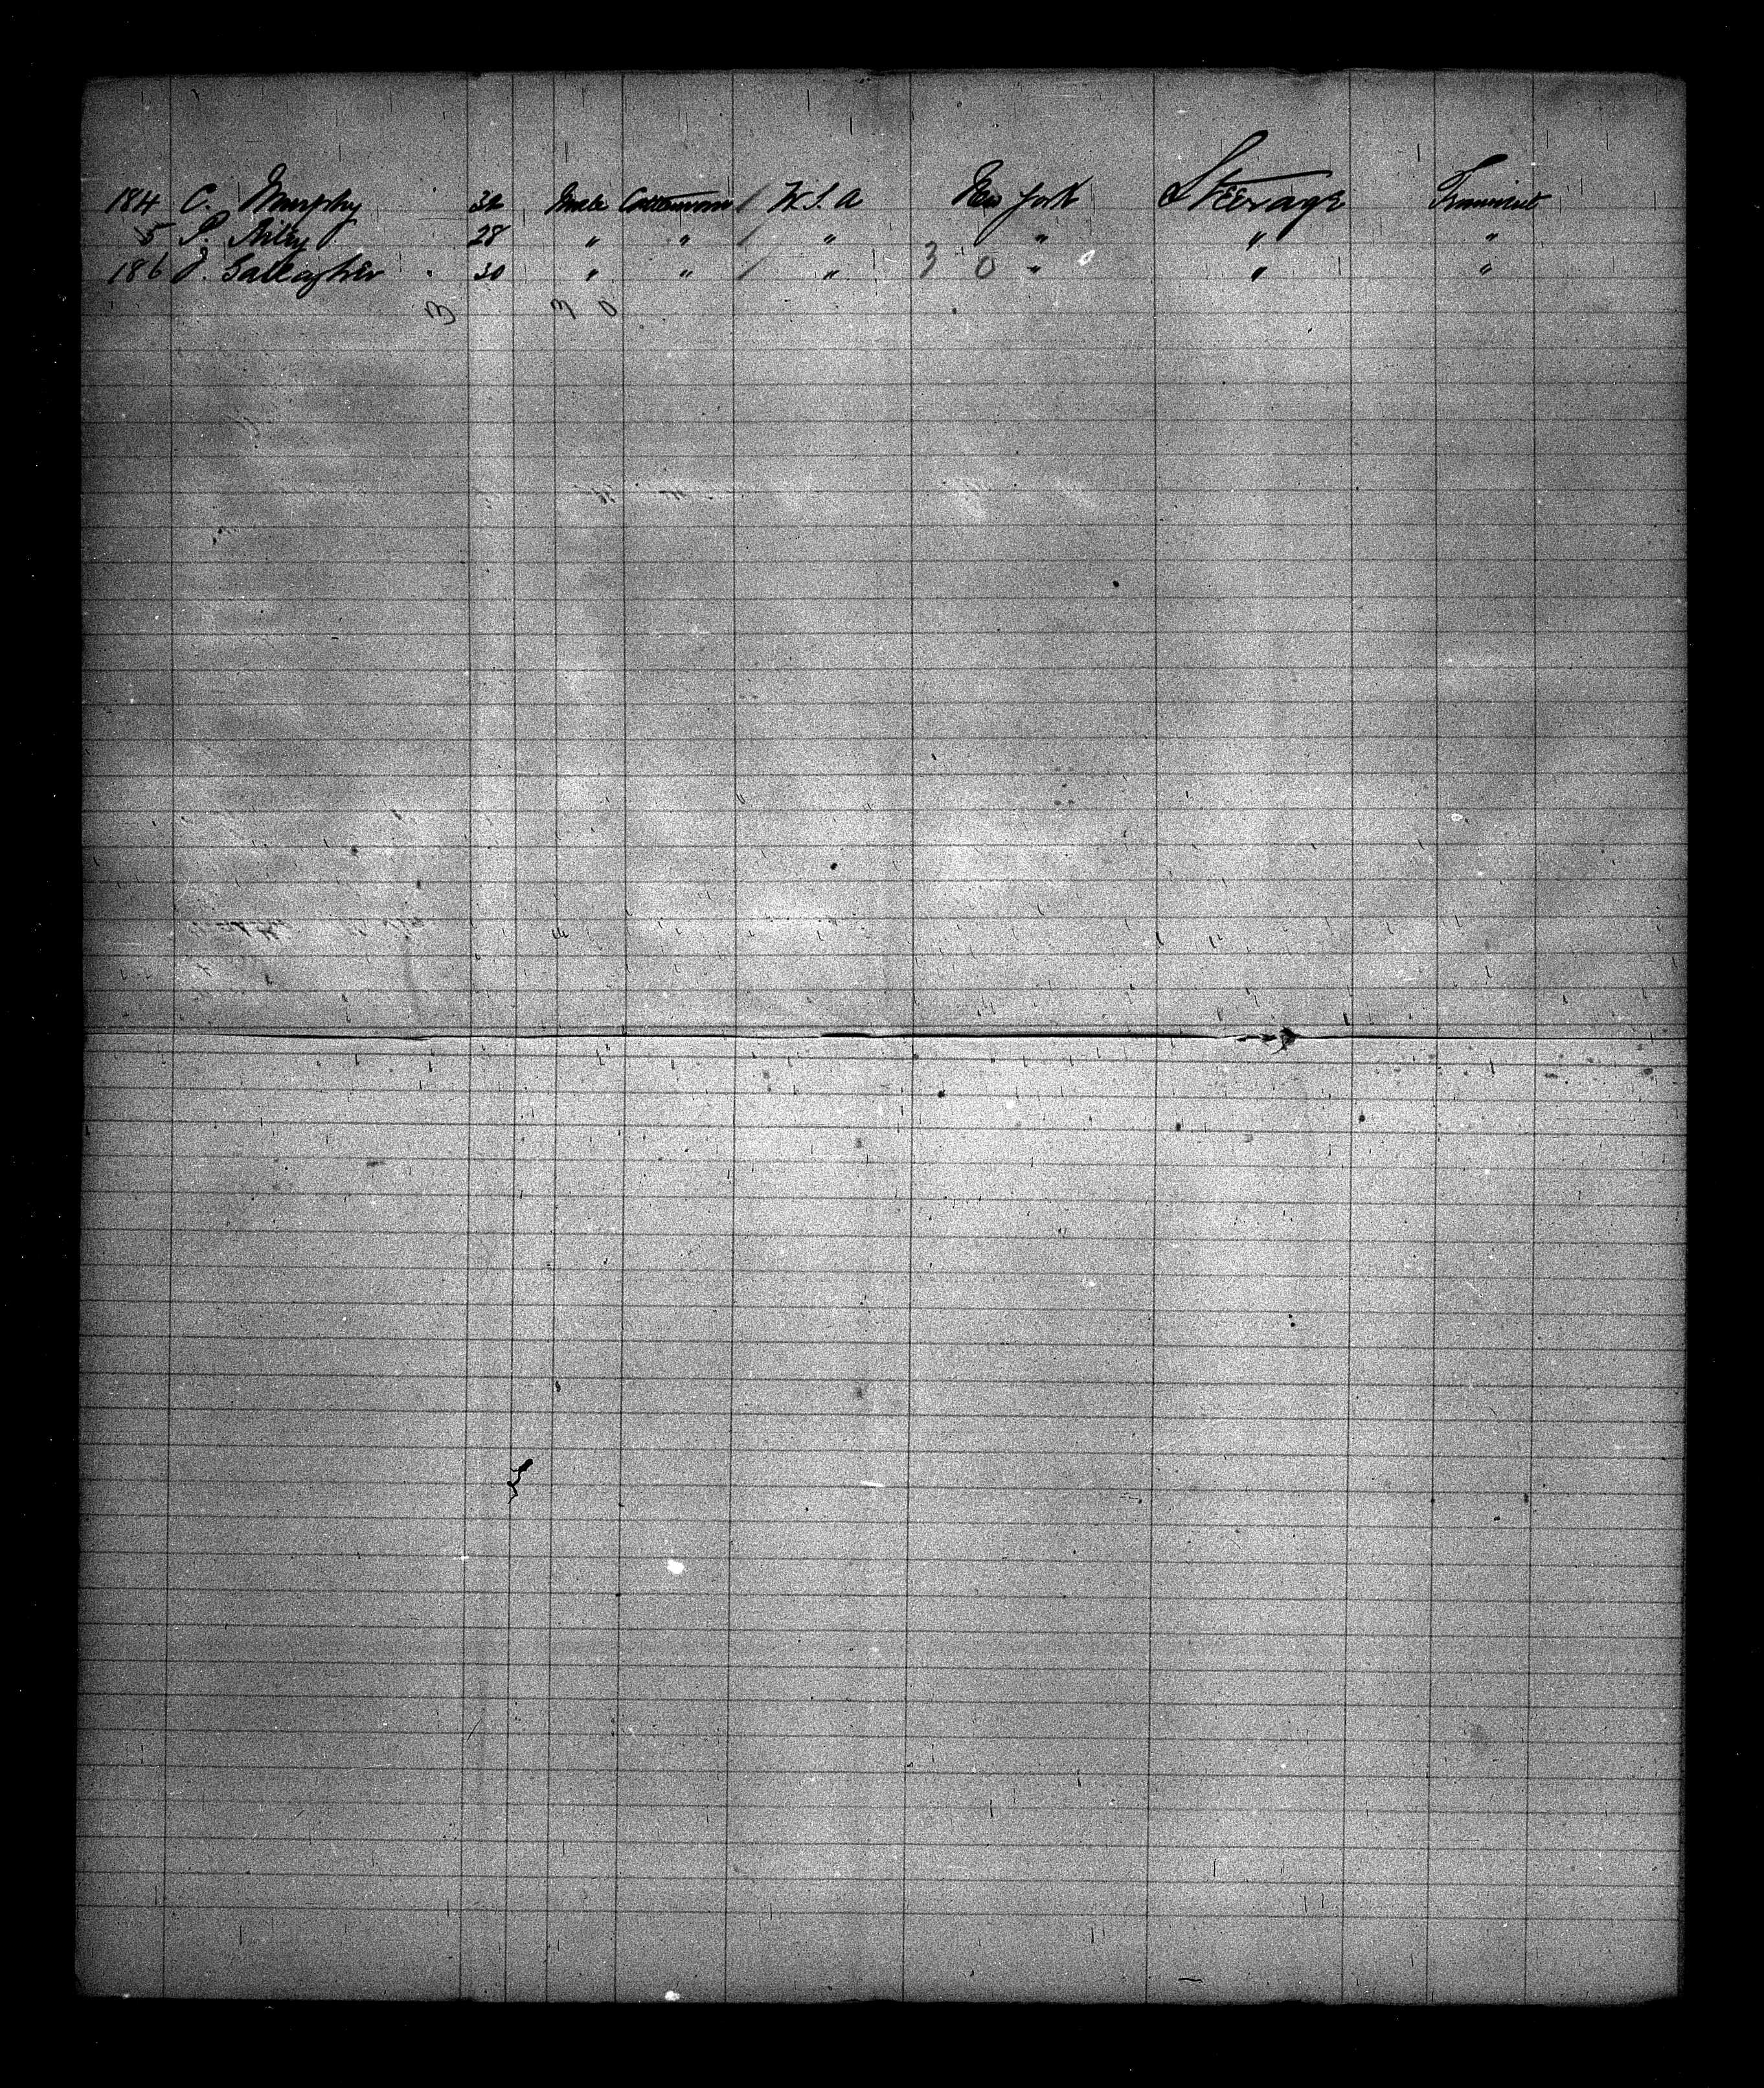 184 C. Murphy 32 Male Cattleman / U.S.A New York Steerage Transient
5 P. Riley 28 " " / " " " "
186 J. Gallagher 30 " " / " 3 0 " " "
3 3 0